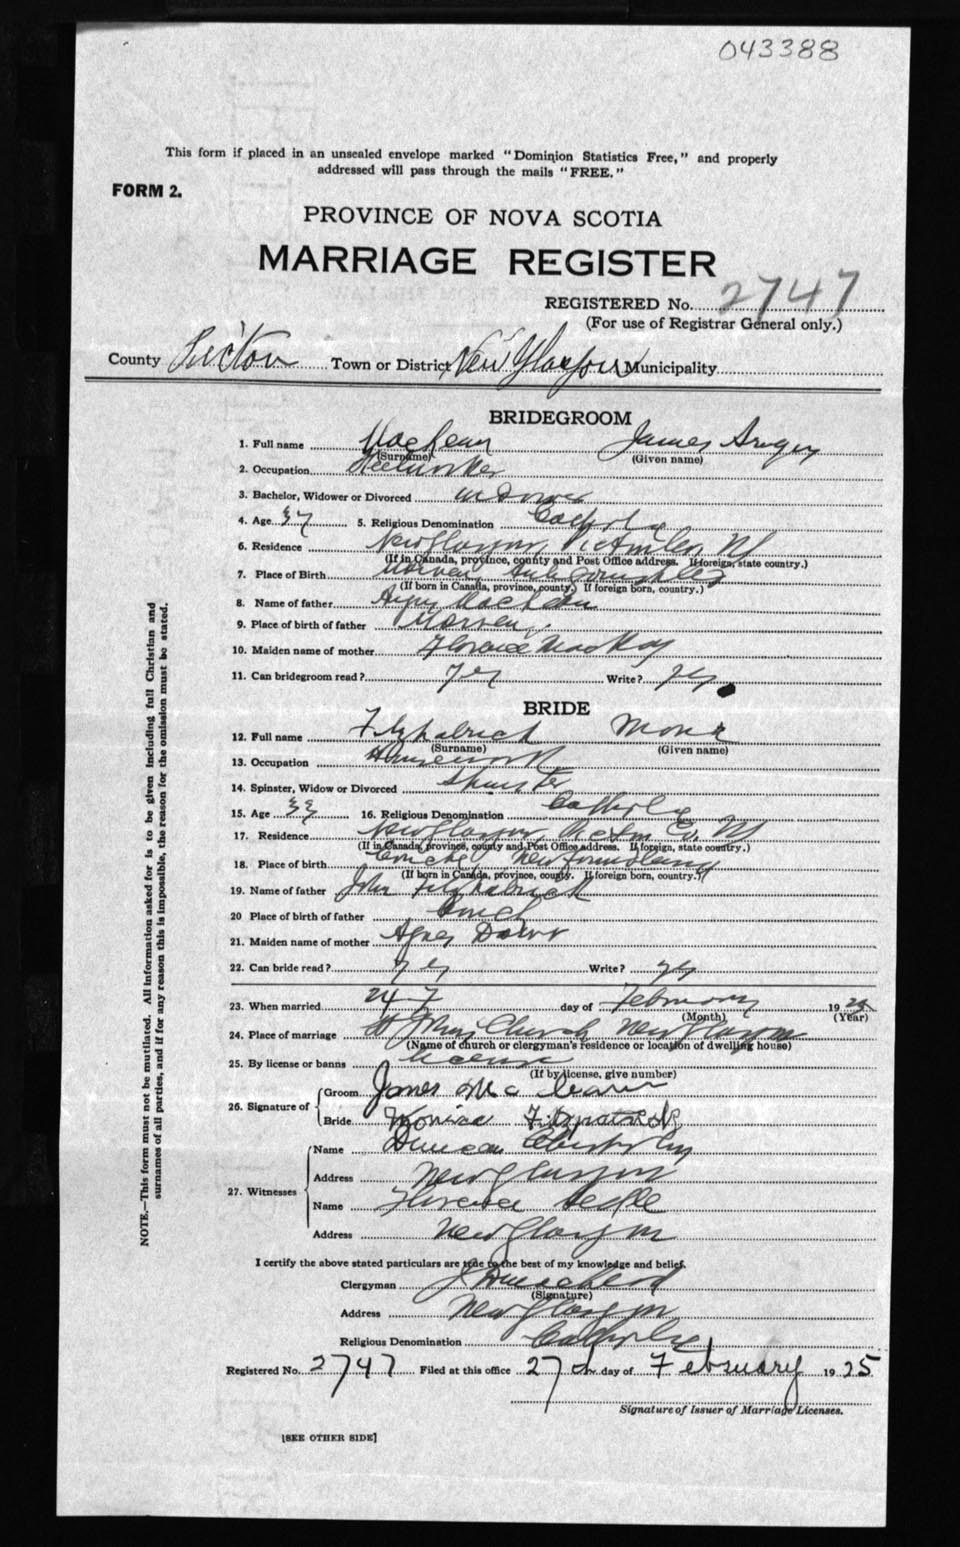 043388
This form if placed in an unsealed envelope marked "Dominion Statistics Free," and properly
addressed will pass through the mails "FREE."
FORM 2.
PROVINCE OF NOVA SCOTIA
MARRIAGE REGISTER
REGISTERED No. 2747
(For use of Registrar General only.)
County Pictou Town or District New Glasgow Municipality
BRIDEGROOM
1. Full name MacLean James
(Surname) (Given name)
2. Occupation Steelworker
3. Bachelor, Widower or Divorced widower
4. Age 37 5. Religious Denomination Catholic
6. Residence New Glasgow, Pictou Co, NS
(If in Canada, province, county and Post Office address. If foreign, state country.)
7. Place of Birth Morven Antigonish Co
(If born in Canada, province, county. If foreign born, country.)
8. Name of father Angus MacLean
9. Place of birth of father Morven
10. Maiden name of mother Florence MacKay
11. Can bridegroom read? Yes Write? Yes
BRIDE
12. Full name Fitzpatrick Mona
(Surname) (Given name)
13. Occupation Housework
14. Spinster, Widow or Divorced Spinster
15. Age 33 16. Religious Denomination Catholic
17. Residence New Glasgow, Pictou Co. NS
(If in Canada, province, county and Post Office address. If foreign, state country.)
18. Place of birth Conche Newfoundland
(If born in Canada, province, county. If foreign born, country.)
19. Name of father John Fitzpatrick
20 Place of birth of father Conch
21. Maiden name of mother Agnes Dower
22. Can bride read? Yes Write? yes
23. When married 24 day of February 1925
(Month) (Year)
24. Place of marriage St Johns Church, New Glasgow
(Name of church or clergyman's residence or location of dwelling house)
25. By license or banns License
(If by license, give number)
26. Signature of
Groom James McLean
Bride Monica Fitzpatrick
27. Witnesses
Name Duncan
Address New Glasgow
Name Florence
Address New Glasgow
I certify the above stated particulars are true to the best of my knowledge and belief.
Clergyman
(Signature)
Address New Glasgow
Religious Denomination Catholic
Registered No. 2747 Filed at this office 27th day of February 1925
Signature of Issuer of Marriage Licenses.
[SEE OTHER SIDE]
NOTE.—This form must not be mutilated. All information asked for is to be given including full Christian and
surnames of all parties, and if for any reason this is impossible, the reason for the omission must be stated.